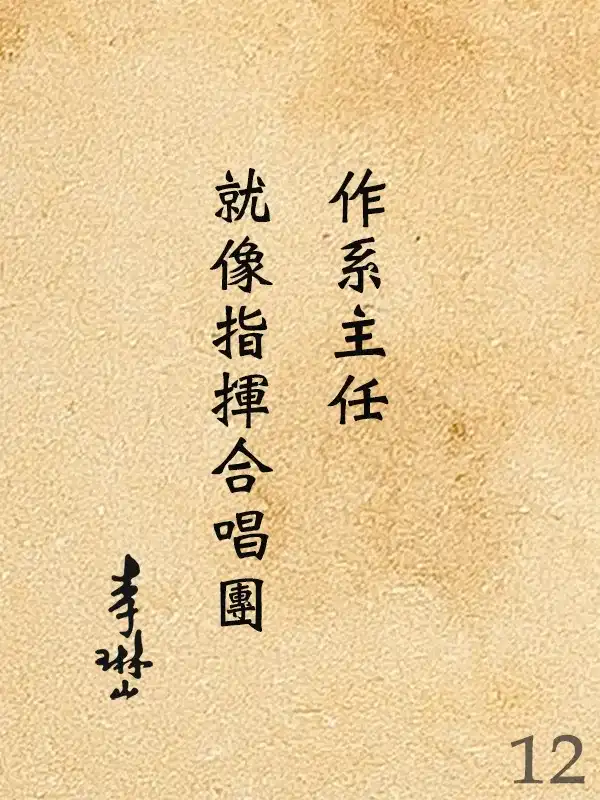 作系主任
就像指揮合唱團
李琳山
12